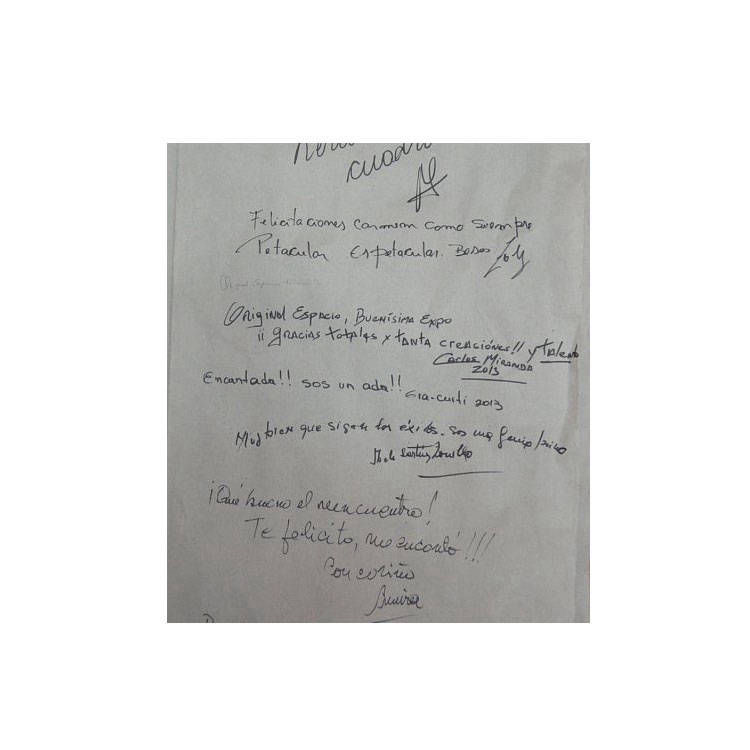 cuadro
Felicitaciones Carmem como Siempre
Petacular Espetacular. Besos Loly
Original Espacio, Buenísima Expo
¡¡ gracias totales x tanta creaciónes!! y talento
Carlos Miranda
2013
Encantada!! sos un ada!! 2013
Muy bien que sigan los éxitos. sos una genia
¡Qué bueno el reencuentro!
Te felicito, me encantó!!!
Con cariño